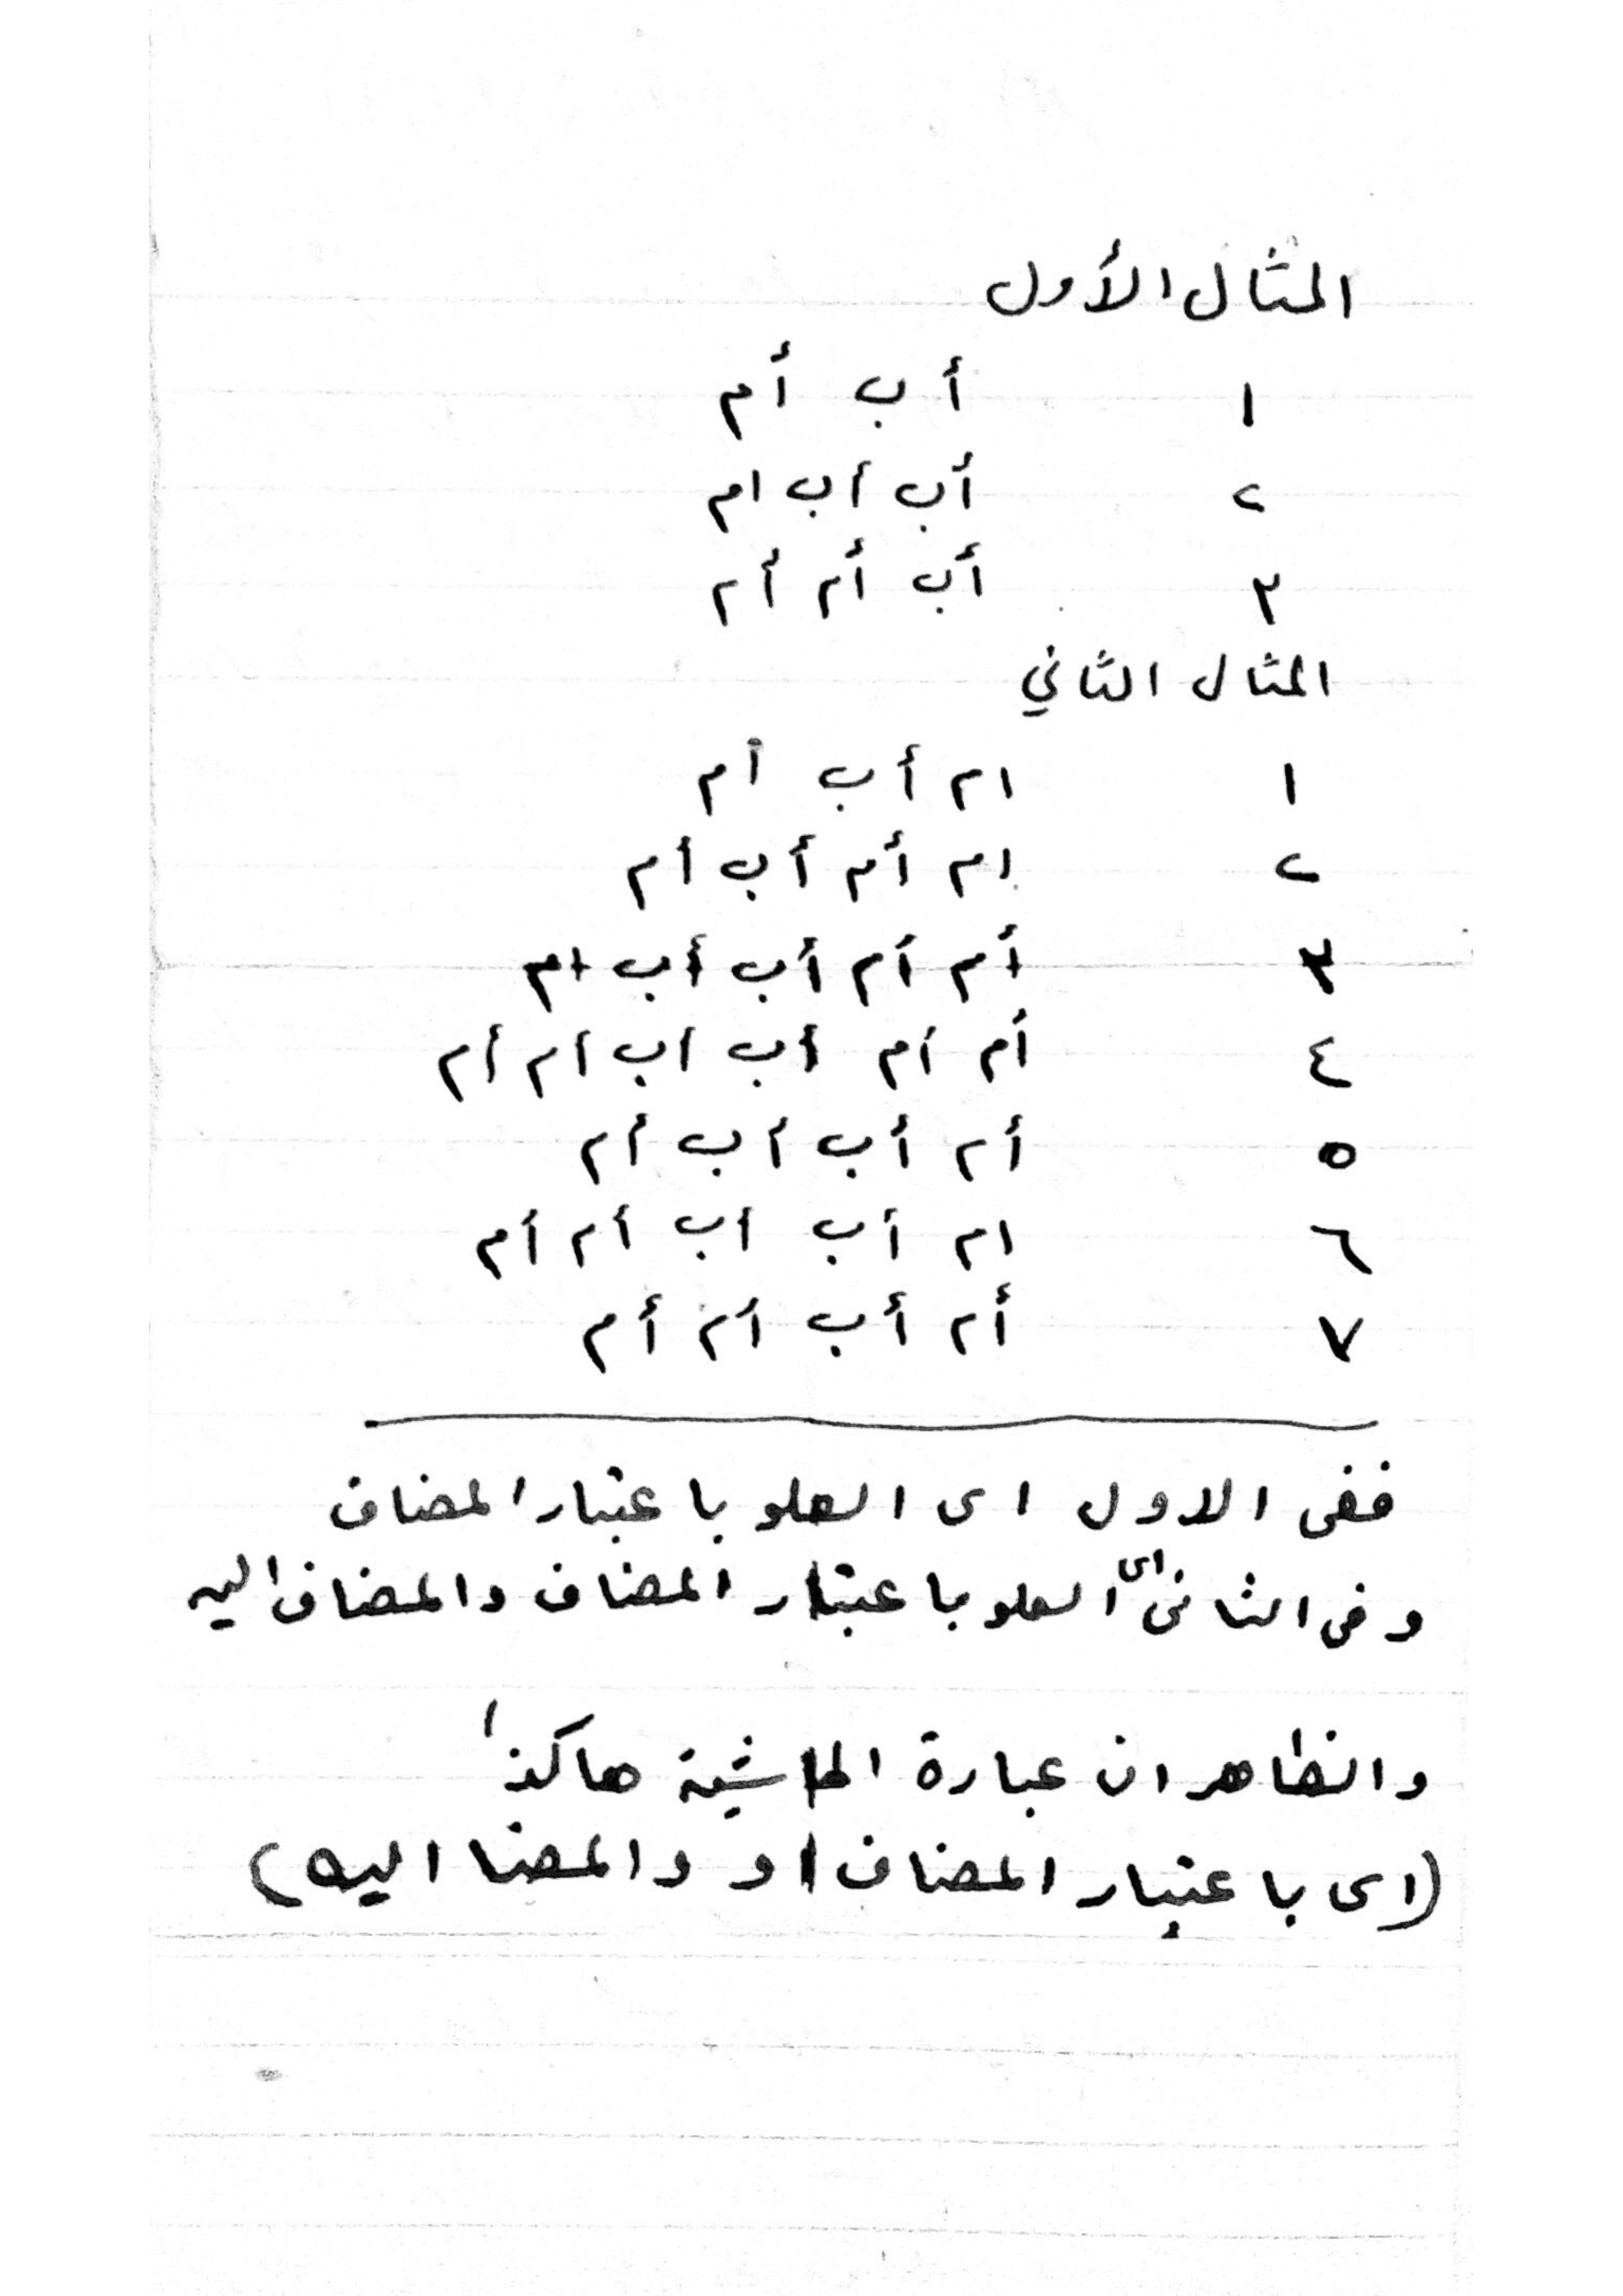 المثال الأول
١ أب أم
٢ أب أب ام
٣ أب أم أم
المثال الثاني
١ ام أب أم
٢ ام أم أب أم
٣ أم أم أب أب ام
٤ أم أم أب أب أم أم
٥ أم أب أب أم
٦ ام أب أب أم أم
٧ أم أب أم أم
ففى الاول اى العلو باعتبار المضاف
وفى الثانى اى العلو باعتبار المضاف والمضاف اليه
والظاهر ان عبارة الحاشية هاكذا
(اى باعتبار المضاف او والمضا اليه)